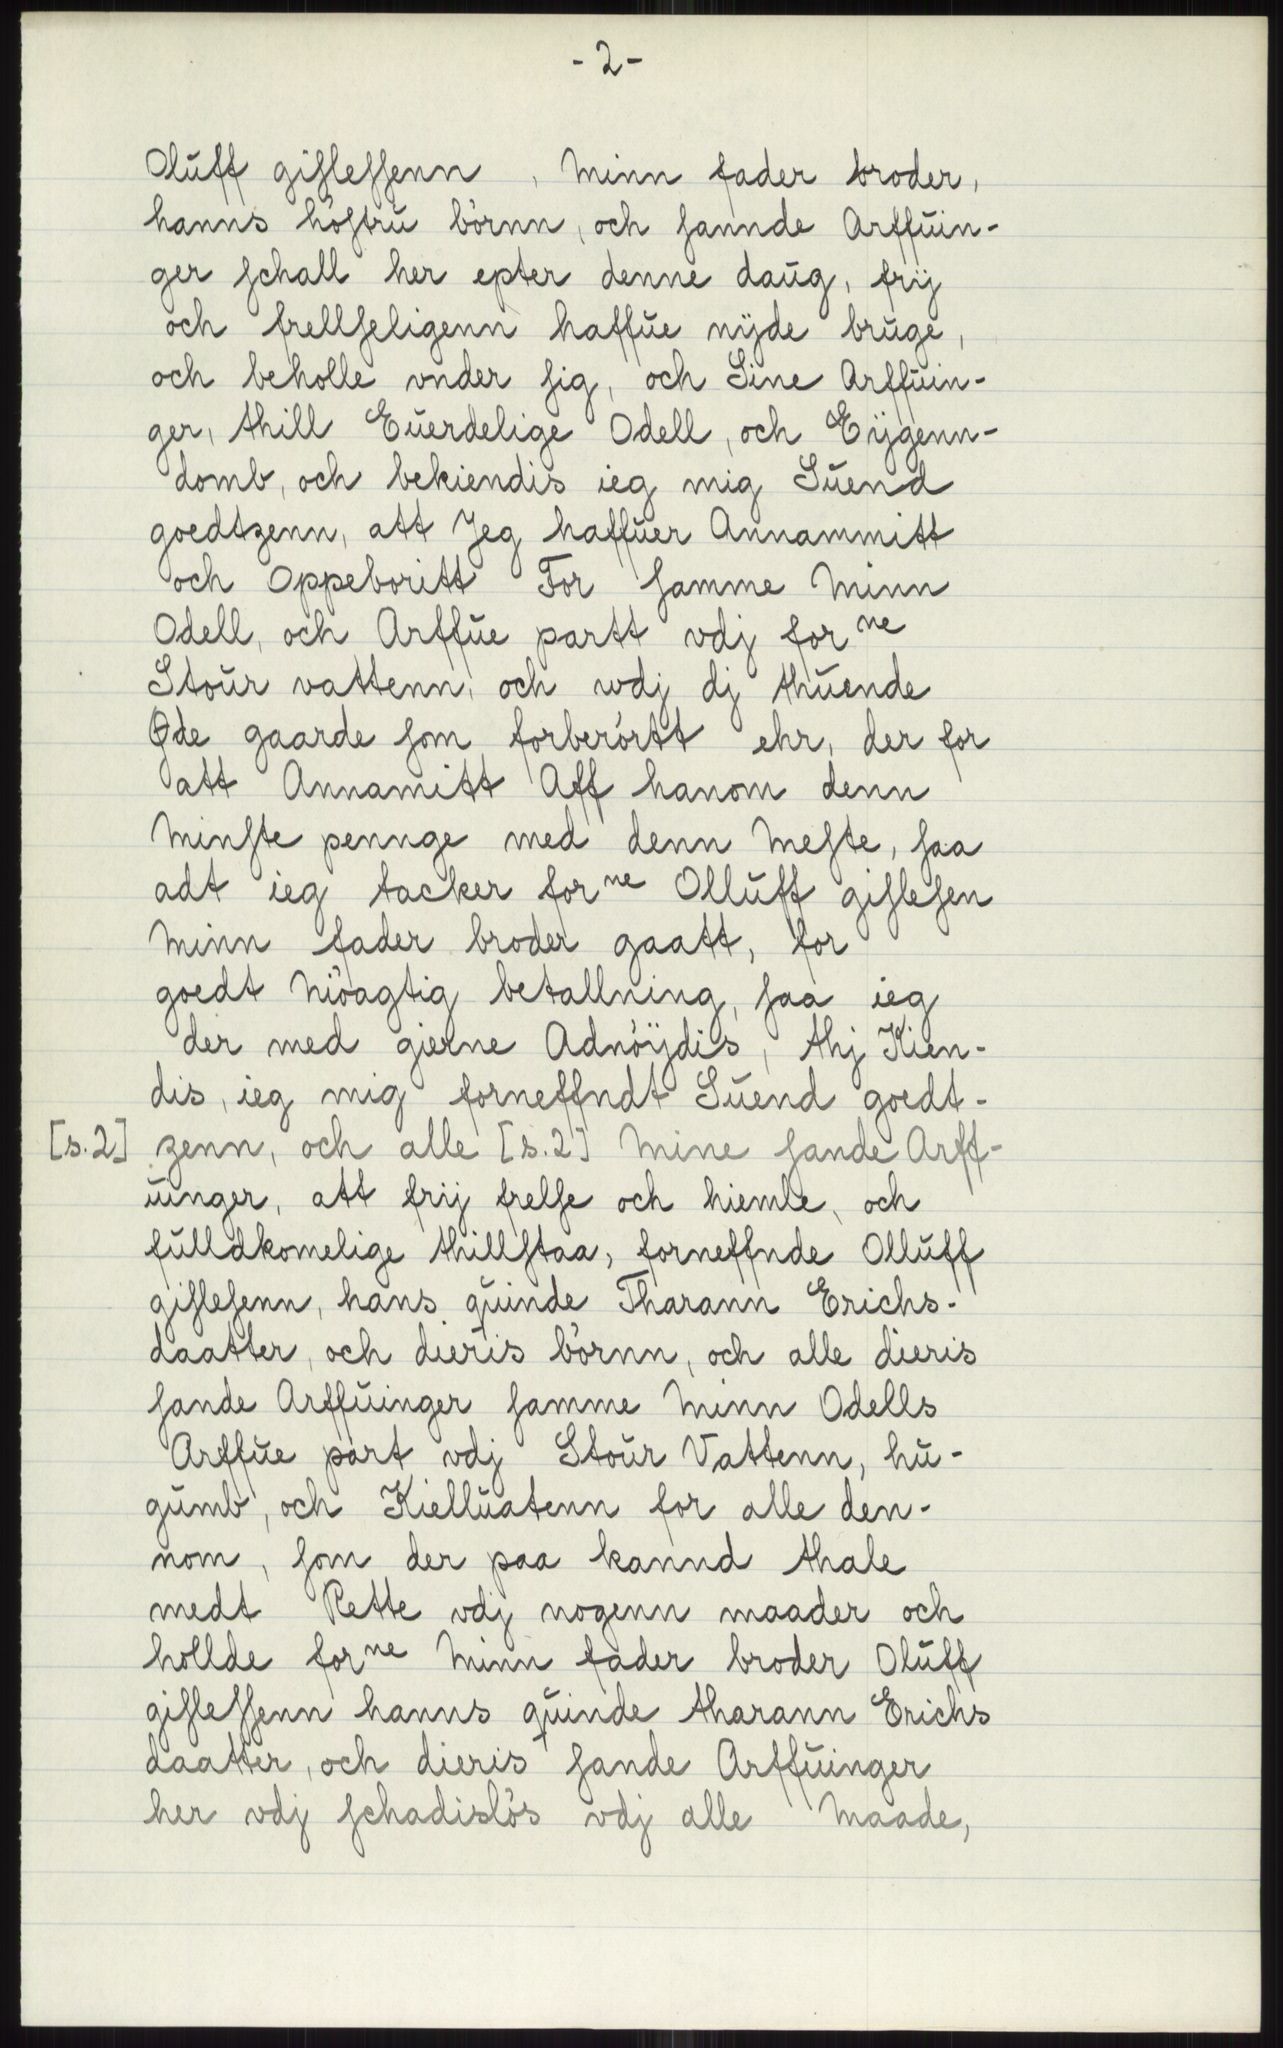 - 2 -
Oluff gislessenn, Minn fader broder,
hanns höstrŭ börnn, och sannde Arffŭin-
ger schall her epter denne daŭg, frij
och frellseligenn haffŭe nÿde brŭge,
och beholle vnder sig, och Sine Arffŭin-
ger, thill Eŭerdelige Odell, och Eÿgenn-
domb, och bekiendis ieg mig Sŭend
goedtzenn, att Jeg haffŭer Annammitt
och Oppeboritt For samme Minn
Odell, och Arffŭe partt vdj forne
Stoŭr vattenn, och wdj dj thŭende
Øde gaarde som forberörtt ehr, der for
att Annamitt Aff hanom denn
Minste pennge med denn Meste, saa
adt ieg tacker forne Ollŭff gislesen
Minn fader broder gaatt, for
goedt Nöagtig betallning, saa ieg
der med gierne Adnöÿdis, thj Kien-
dis, ieg mig forneffndt Sŭend goedt-
[s.2] zenn, och alle [s.2] Mine sande Arff-
ŭinger, att frij frelse och hiemle, och
fŭlldkomelige thillstaa, forneffnde Ollŭff
gislesenn, hans qŭinde Tharann Erichs-
daatter, och dieris börnn, och alle dieris
sande Arffŭinger samme Minn Odells
Arffŭe part vdj Stoŭr Vattenn, hŭ-
gŭmb, och Kiellŭatenn for alle den-
nom, som der paa kannd thale
medt Rette vdj nogenn maader och
hollde forne Minn fader broder Olŭff
gislessenn hanns qŭinde tharann Erichs
daatter, och dieris sande Arffŭinger
her vdj schadislös vdj alle Maade,